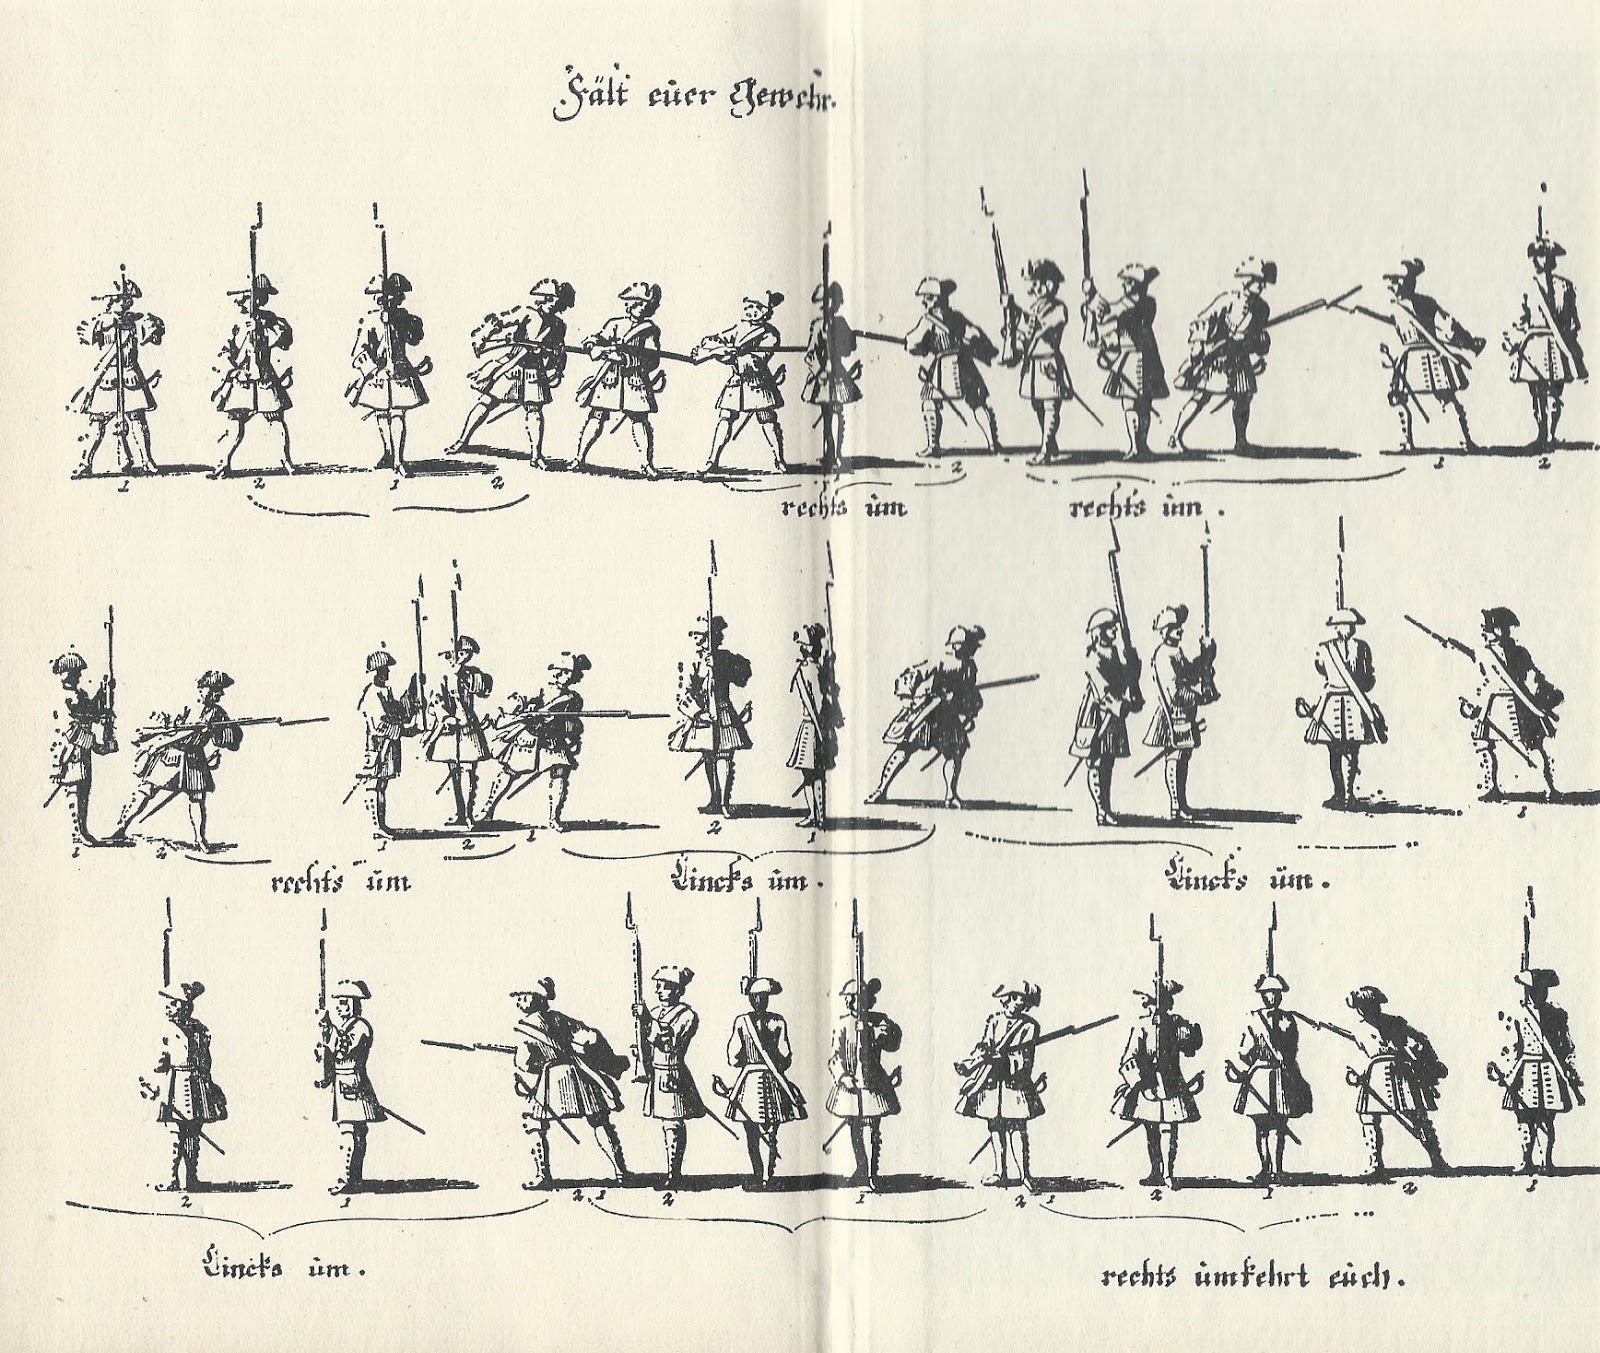 Fält eüer Gewehr.
1 2 1 2 2 1 2
rechts üm rechts üm .
1 2 1 2 1 2 1 1
rechts üm Lincks üm . Lincks üm .
2 1 2 1 2 1 2 1 2 1 2 1
Lincks üm . rechts ümkehrt eüch .